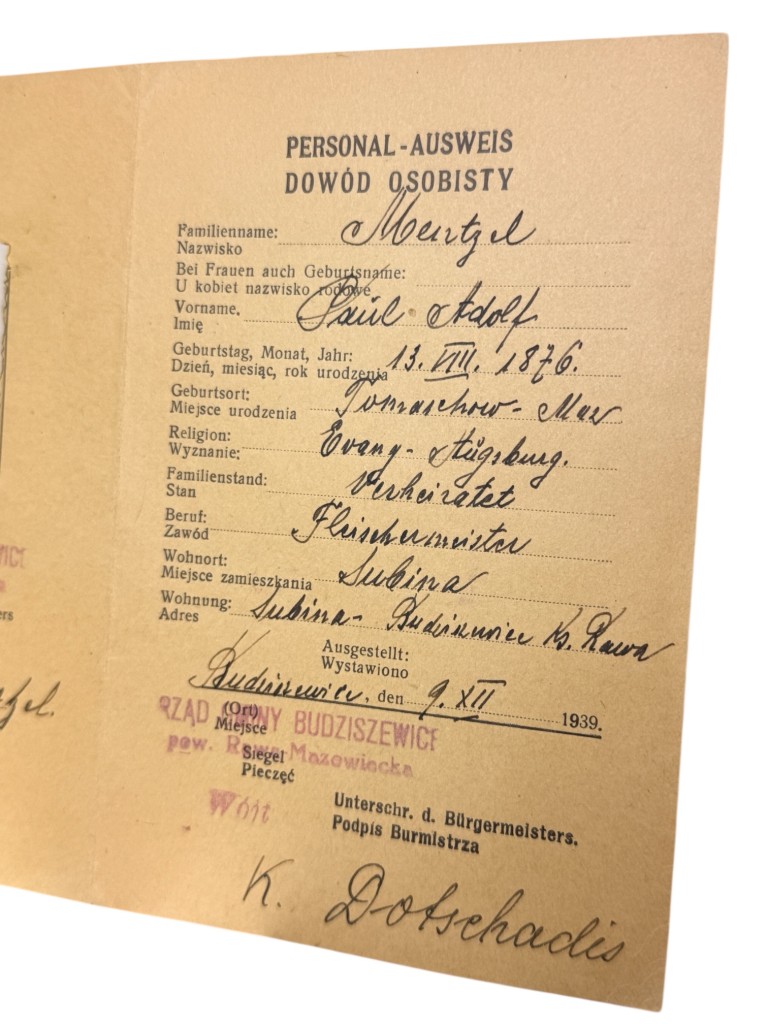 PERSONAL-AUSWEIS
DOWÓD OSOBISTY
Familienname: Mentzel
Nazwisko
Bei Frauen auch Geburtsname:
U kobiet nazwisko rodowe
Vorname. Paul Adolf
Imię
Geburtstag, Monat, Jahr: 13. VIII. 1876.
Dzień, miesiąc, rok urodzenia
Geburtsort: Tomaschow- Maz
Miejsce urodzenia
Religion: Evang- Augsburg.
Wyznanie:
Familienstand: Verheiratet
Stan
Beruf: Fleischermeister
Zawód
Wohnort: Lubina
Miejsce zamieszkania
Wohnung: Lubina- Budziszewice Ks. Rawa
Adres
Ausgestellt:
Wystawiono
Budziszewice, den 9. XII 1939.
(Ort)
Miejsce
RZĄD GMINY BUDZISZEWICE
pow. Rawa-Mazowiecka
Siegel
Pieczęć
Wójt
Unterschr. d. Bürgermeisters.
Podpis Burmistrza
K. Dotschadis